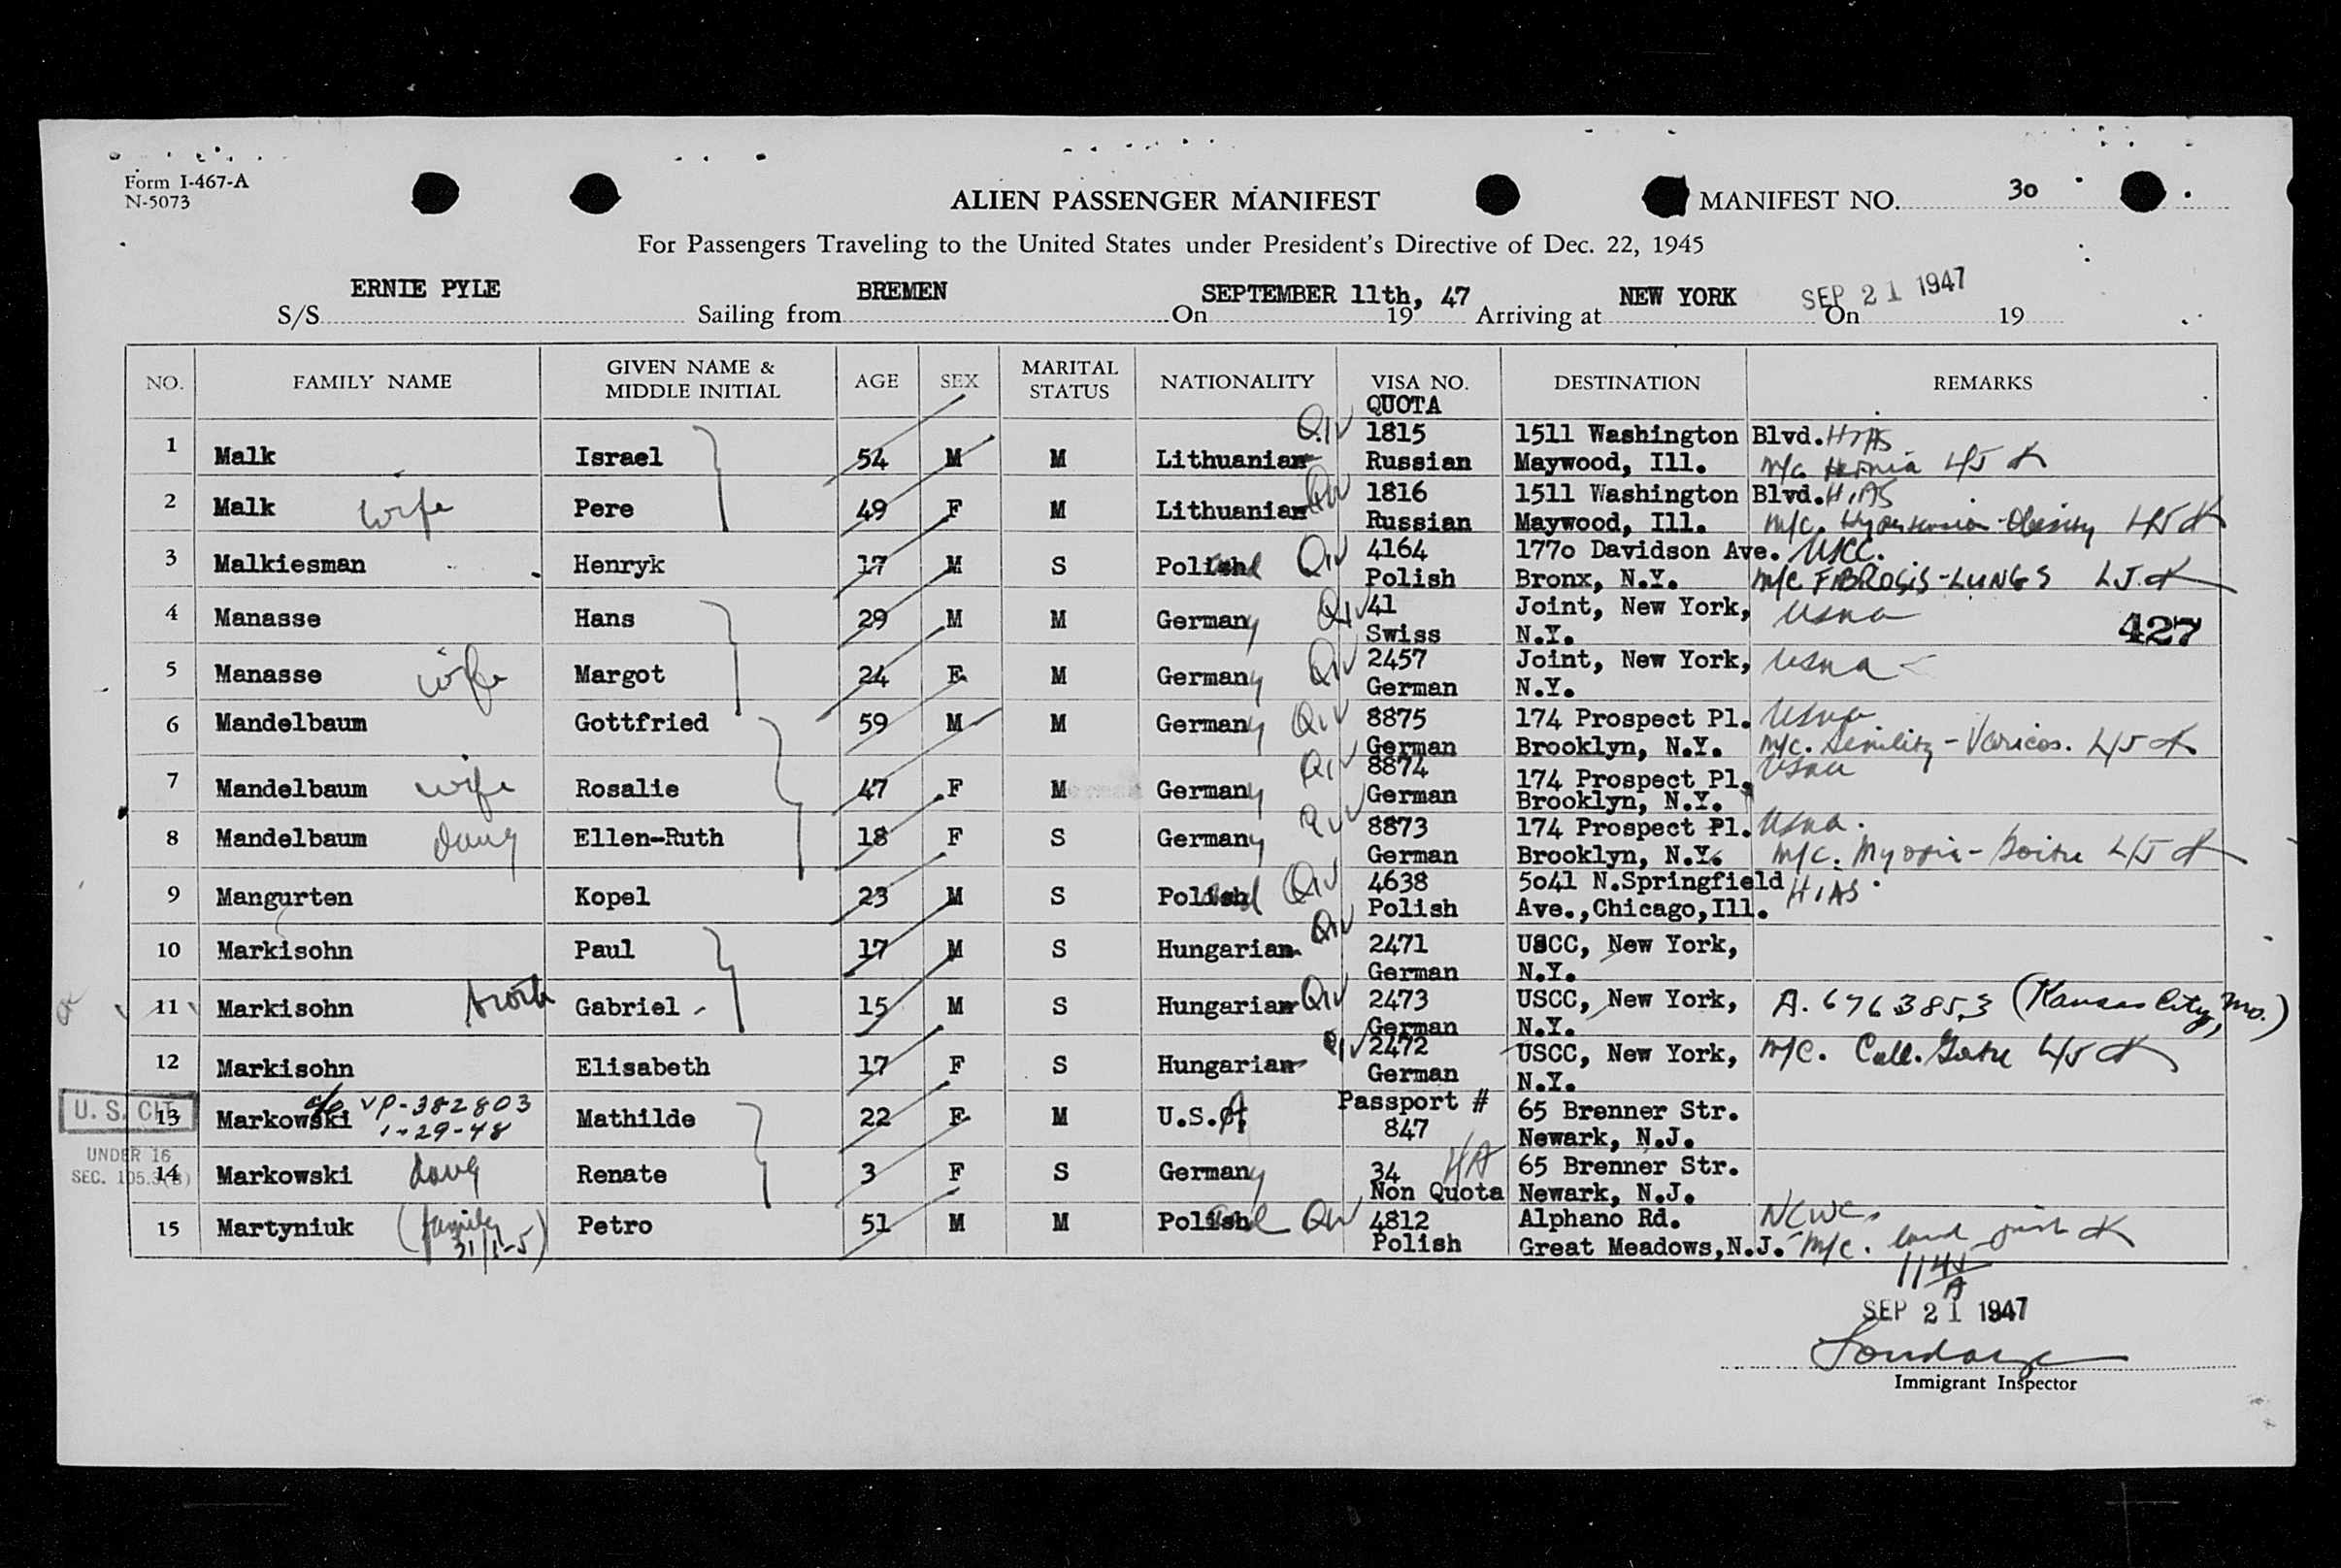 Form I-467-A
N-5073
ALIEN PASSENGER MANIFEST
MANIFEST NO. 30
For Passengers Traveling to the United States under President's Directive of Dec. 22, 1945
S/S ERNIE PYLE Sailing from BREMEN On SEPTEMBER 11th, 1947 Arriving at NEW YORK On SEP 21 1947 19
NO. FAMILY NAME GIVEN NAME & MIDDLE INITIAL AGE SEX MARITAL STATUS NATIONALITY VISA NO. DESTINATION REMARKS
QUOTA
1 Malk Israel 54 M M Lithuanian QIV 1815 1511 Washington Blvd. HIAS
Russian Maywood, Ill. M/C Hernia L/J
2 Malk wife Pere 49 F M Lithuanian QIV 1816 1511 Washington Blvd. HIAS
Russian Maywood, Ill. M/C. Hypertension-Obesity L/J
3 Malkiesman Henryk 17 M S Polish QIV 4164 1770 Davidson Ave. USCC.
Polish Bronx, N.Y. M/C FIBROSIS-LUNGS L.J.
4 Manasse Hans 29 M M Germany QIV 41 Joint, New York, USNA
Swiss N.Y. 427
5 Manasse wife Margot 24 F M Germany QIV 2457 Joint, New York, USNA
German N.Y.
6 Mandelbaum Gottfried 59 M M Germany QIV 8875 174 Prospect Pl. USNA
German Brooklyn, N.Y. M/C. Senility - Varicos. L/J
7 Mandelbaum wife Rosalie 47 F M Germany QIV 8874 174 Prospect Pl. USNA
German Brooklyn, N.Y.
8 Mandelbaum daug Ellen-Ruth 18 F S Germany QIV 8873 174 Prospect Pl. USNA.
German Brooklyn, N.Y. M/C. Myopia - Goitre L/J
9 Mangurten Kopel 23 M S Polish QIV 4638 5041 N.Springfield HIAS
Polish Ave.,Chicago,Ill.
10 Markisohn Paul 17 M S Hungarian QIV 2471 USCC, New York,
German N.Y.
11 Markisohn Gabriel 15 M S Hungarian QIV 2473 USCC, New York, A. 6763853 (Kansas City, Mo.)
German N.Y.
12 Markisohn Elisabeth 17 F S Hungarian QIV 2472 USCC, New York, M/C. Coll. Goitre L/J
German N.Y.
U. S. CIT. 13 Markowski VP-382803 Mathilde 22 F M U.S.A. Passport # 65 Brenner Str.
1-29-48 847 Newark, N.J.
UNDER 16
SEC. 105.3(B) 14 Markowski daug Renate 3 F S Germany 34 65 Brenner Str.
Non Quota Newark, N.J.
15 Martyniuk (family 31/1-5) Petro 51 M M Polish QIV 4812 Alphano Rd. NCWC.
Polish Great Meadows,N.J. M/C.
SEP 21 1947
Immigrant Inspector